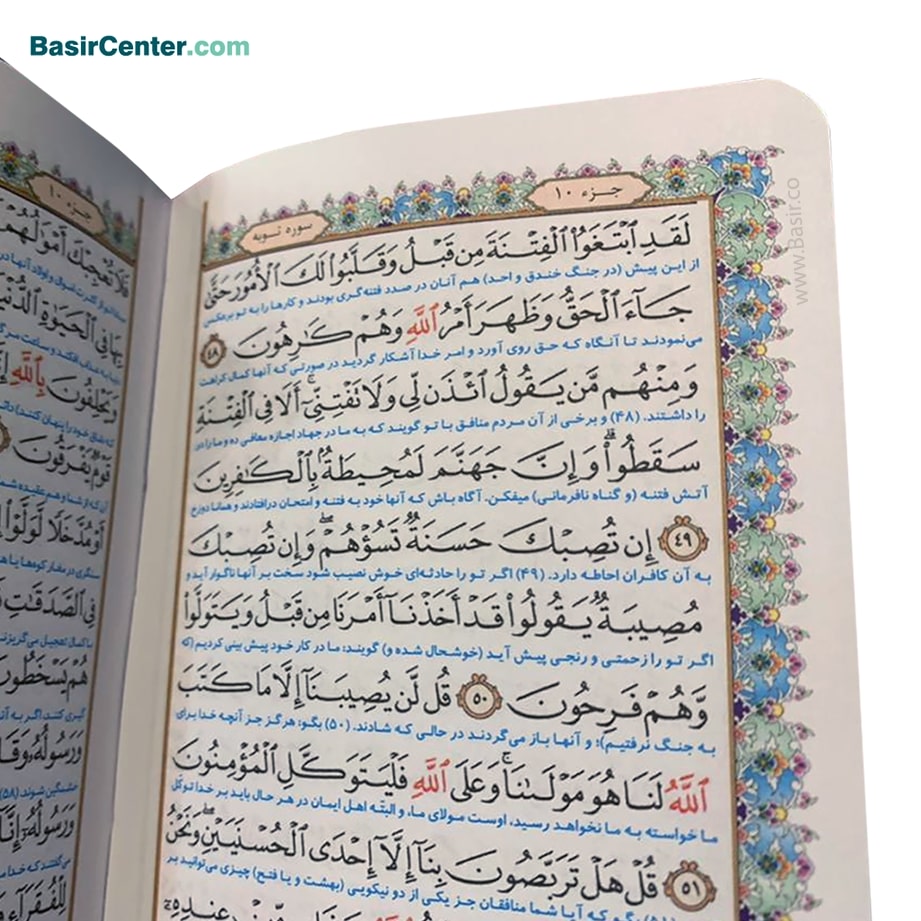 BasirCenter.com
www.Basir.co
جزء ۱۰
سوره توبه
لَقَدِ ٱبْتَغَوُا۟ ٱلْفِتْنَةَ مِن قَبْلُ وَقَلَّبُوا۟ لَكَ ٱلْأُمُورَ حَتَّىٰ
از این پیش (در جنگ خندق و احد) هم آنان در صدد فتنه‌گری بودند و کارها را به تو برعکس
جَآءَ ٱلْحَقُّ وَظَهَرَ أَمْرُ ٱللَّهِ وَهُمْ كَٰرِهُونَ ۴۸
می‌نمودند تا آنگاه که حق روی آورد و امر خدا آشکار گردید در صورتی که آنها کمال کراهت
وَمِنْهُم مَّن يَقُولُ ٱئْذَن لِّى وَلَا تَفْتِنِّىٓ ۚ أَلَا فِى ٱلْفِتْنَةِ
را داشتند. (۴۸) و برخی از آن مردم منافق با تو گویند که به ما در جهاد اجازه معافی ده و ما را در
سَقَطُوا۟ ۗ وَإِنَّ جَهَنَّمَ لَمُحِيطَةٌۢ بِٱلْكَٰفِرِينَ
آتش فتنه (و گناه نافرمانی) میفکن. آگاه باش که آنها خود به فتنه و امتحان درافتادند و همانا دوزخ
۴۹ إِن تُصِبْكَ حَسَنَةٌ تَسُؤْهُمْ ۖ وَإِن تُصِبْكَ
به آن کافران احاطه دارد. (۴۹) اگر تو را حادثه‌ای خوش نصیب شود سخت بر آنها ناگوار آید و
مُصِيبَةٌ يَقُولُوا۟ قَدْ أَخَذْنَآ أَمْرَنَا مِن قَبْلُ وَيَتَوَلَّوا۟
اگر تو را زحمتی و رنجی پیش آید (خوشحال شده و) گویند: ما در کار خود پیش بینی کردیم (که
وَّهُمْ فَرِحُونَ ۵۰ قُل لَّن يُصِيبَنَآ إِلَّا مَا كَتَبَ
به جنگ نرفتیم)؛ و آنها باز می‌گردند در حالی که شادند. (۵۰) بگو: هرگز جز آنچه خدا برای
ٱللَّهُ لَنَا هُوَ مَوْلَىٰنَا ۚ وَعَلَى ٱللَّهِ فَلْيَتَوَكَّلِ ٱلْمُؤْمِنُونَ
ما خواسته به ما نخواهد رسید، اوست مولای ما، و البتّه اهل ایمان در هر حال باید بر خدا توکّل
۵۱ قُلْ هَلْ تَرَبَّصُونَ بِنَآ إِلَّآ إِحْدَى ٱلْحُسْنَيَيْنِ ۖ وَنَحْنُ
بگو که آیا شما منافقان جز یکی از دو نیکویی (بهشت و یا فتح) چیزی می‌توانید بر
عِندِهِۦٓ
جزء ۱۰
فَلَا تُعْجِبْكَ أَمْوَٰلُهُمْ
بِهَا فِى ٱلْحَيَوٰةِ ٱلدُّنْيَا
وَيَحْلِفُونَ بِٱللَّهِ
قَوْمٌ يَفْرَقُونَ
أَوْ مُدَّخَلًا لَّوَلَّوْا۟
فِى ٱلصَّدَقَٰتِ
هُمْ يَسْخَطُونَ
وَرَسُولُهُۥ وَقَا
خشمگین شوند. (۵۸)
وَرَسُولُهُۥٓ إِنَّا
لِلْفُقَرَآءِ